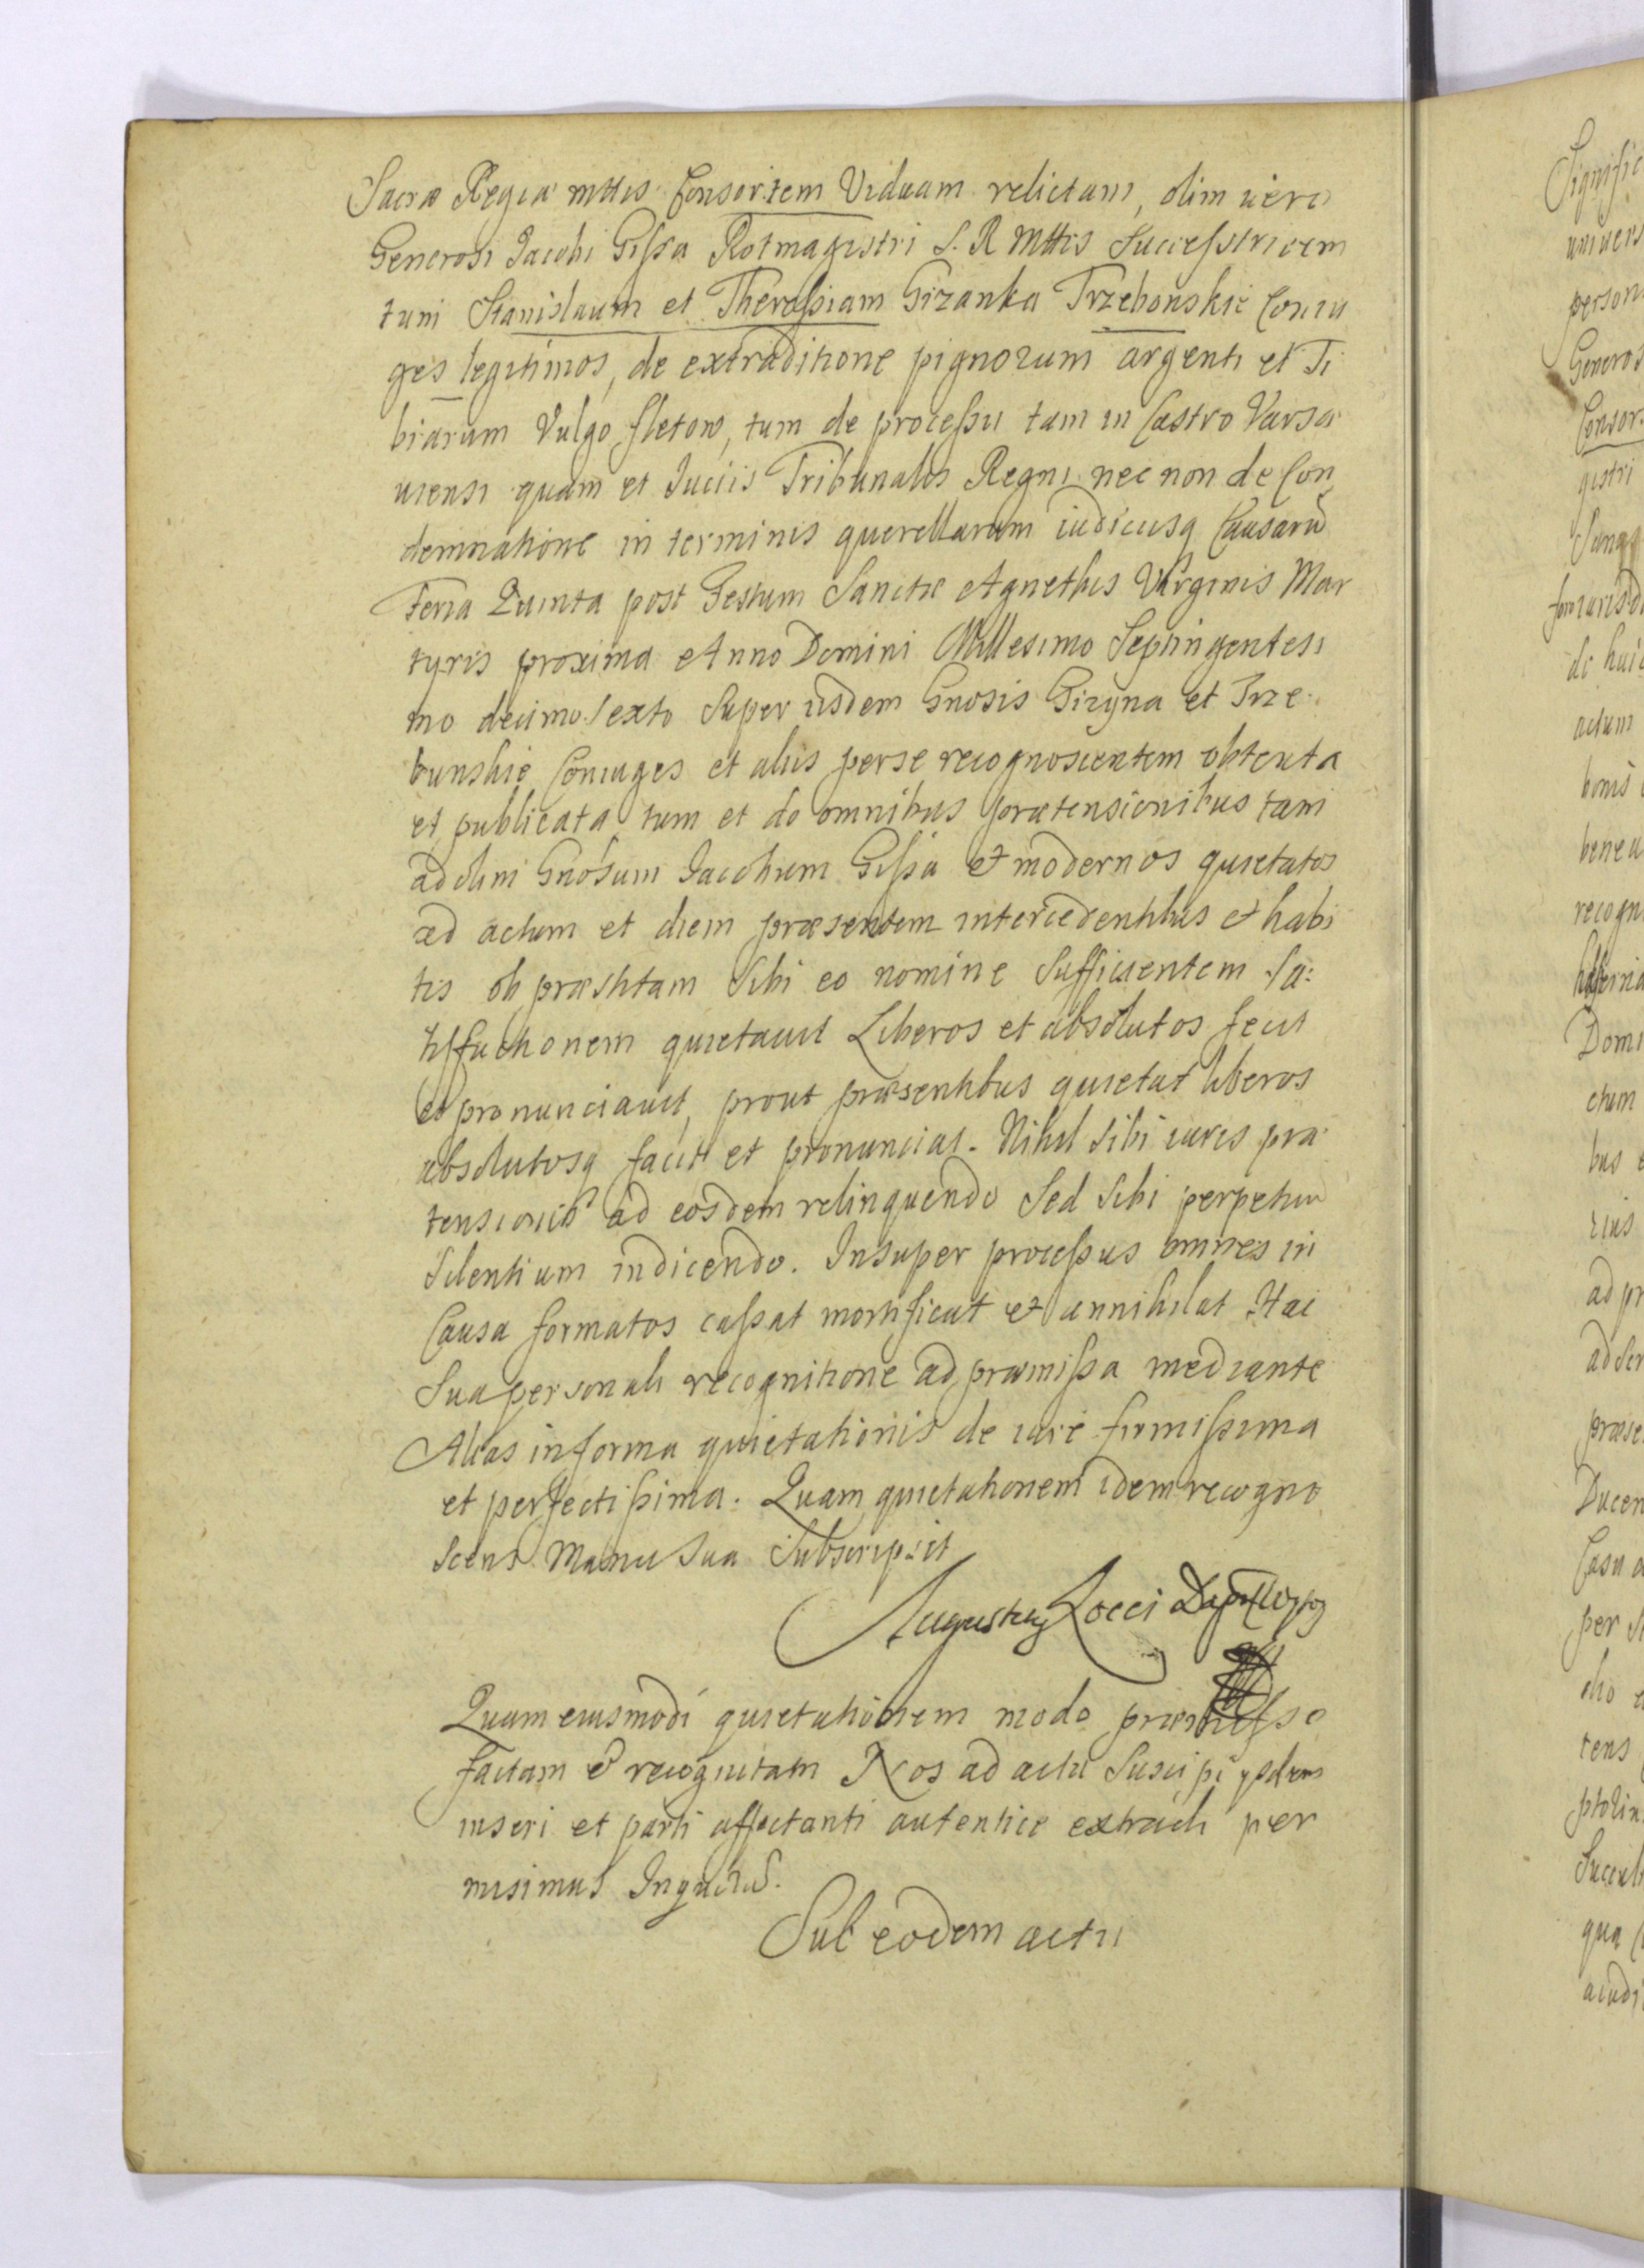 Sacræ Regiæ mttis Consortem Viduam relictam, olim vero
Generosi Jacobi Gissa Rotmagistri S. R Mttis Successtricem
tum Stanislaum et Theressiam Gizanka Trzebonskie Coniu
ges legitimos, de extraditione pignorum argenti et Ti
biarum Vulgo fletow, tum de processu tam in Castro Varsa
uiensi quam et Juciis Tribunalis Regni nec non de Con
demnatione in terminis querellarum iudicusq Causarū
Feria Quinta post Festum Sanctæ Agnethis Virginis Mar
tyris proxima Anno Domini Millesimo Septingentesi
mo decimo sexto Super iisdem Gnosis Gizyna et Trze
bunskie Coniuges et aliis per se recognoscentem obtenta
et publicata tum et de omnibus prætensionibus tam
ad olim Gnosum Jacobum Gissa et modernos quietatos
ad actum et diem præsentem intercedentibus et habi
tis ob præstitam Sibi eo nomine Sufficientem Sa:
tisfactionem quietauit Liberos et absolutos fecit
et pronunciauit, prout præsentibus quietat liberos
absolutosq facit et pronunciat. Nihil Sibi iuris præ
tensionis ad eosdem relinquendo Sed Sibi perpetuū
Silentium indicendo. Insuper processus omnes in
Causa formatos cassat mortificat et annihilat Hac
Sua personali recognitione ad præmissa mediante
Alias in forma quietationis de iure firmissima
et perfectissima. Quam quietationem idem recogno
scens Manu Sua Subscripsit
Augustus Locci
Quam eiusmodi quietationem modo præmisso
factam & recognitam Nos ad acta Suscipi
inseri et parti affectanti autentice extradi per
misimus
Sub eodem actu
Signific
univers
person
Generos
Consor
gistri
de huic
actum
bonis
bene
recogn
Domi
ctum
bus
ad pr
præse
Ducen
Casu
per
tens
qua